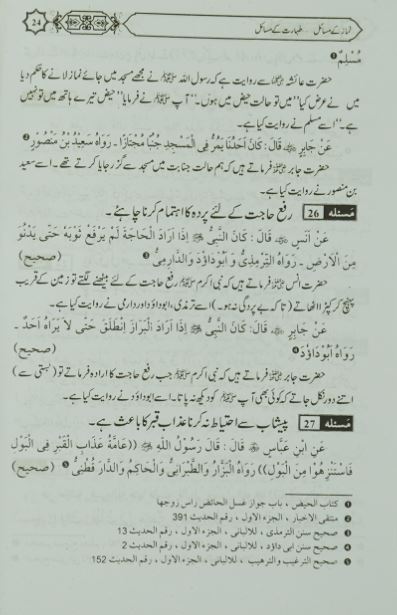 24
نماز کے مسائل ... طہارت کے مسائل
مُسْلِمٌ ❶
حضرت عائشہ رضی اللہ عنہا سے روایت ہے کہ رسول اللہ ﷺ نے مجھے مسجد میں جائے نماز لانے کا حکم دیا
میں نے عرض کیا "میں تو حالت حیض میں ہوں۔" آپ ﷺ نے فرمایا "حیض تیرے ہاتھ میں تو نہیں
ہے۔" اسے مسلم نے روایت کیا ہے۔
عَنْ جَابِرٍ ﷺ قَالَ: كَانَ أَحَدُنَا يَمُرُّ فِي الْمَسْجِدِ جُنُبًا مُجْتَازًا ۔ رَوَاهُ سَعِيدُ بْنُ مَنْصُوْرٍ ❷
حضرت جابر رضی اللہ عنہ فرماتے ہیں کہ ہم حالت جنابت میں مسجد سے گزر جایا کرتے تھے۔ اسے سعید
بن منصور نے روایت کیا ہے۔
مَسئله 26 رفع حاجت کے لئے پردہ کا اہتمام کرنا چاہئے۔
عَنْ أَنَسٍ ﷺ قَالَ: كَانَ النَّبِيُّ ﷺ إِذَا أَرَادَ الْحَاجَةَ لَمْ يَرْفَعْ ثَوْبَهُ حَتَّى يَدْنُوَ
مِنَ الْاَرْضِ ۔ رَوَاهُ التِّرْمِذِيُّ وَ اَبُوْدَاوُدَ وَالدَّارِمِيُّ ❸ (صحيح)
حضرت انس رضی اللہ عنہ فرماتے ہیں نبی اکرم ﷺ رفع حاجت کے لئے بیٹھنے لگتے تو زمین کے قریب
پہنچ کر کپڑا اٹھاتے (تاکہ بے پردگی نہ ہو۔) اسے ترمذی، ابوداؤد اور دارمی نے روایت کیا ہے۔
عَنْ جَابِرٍ ﷺ قَالَ: كَانَ النَّبِيُّ ﷺ إِذَا أَرَادَ الْبَرَازَ اِنْطَلَقَ حَتَّى لاَ يَرَاهُ اَحَدٌ ۔
رَوَاهُ اَبُوْدَاوُدَ ❹ (صحيح)
حضرت جابر رضی اللہ عنہ فرماتے ہیں کہ نبی اکرم ﷺ جب رفع حاجت کا ارادہ فرماتے تو (بستی سے)
اتنے دور نکل جاتے کہ کوئی بھی آپ ﷺ کو دیکھ نہ پاتا۔ اسے ابوداؤد نے روایت کیا ہے۔
مَسئله 27 پیشاب سے احتیاط نہ کرنا عذاب قبر کا باعث ہے۔
عَنِ ابْنِ عَبَّاسٍ ﷺ قَالَ: قَالَ رَسُوْلُ اللّٰهِ ﷺ ((عَامَّةُ عَذَابِ الْقَبْرِ فِي الْبَوْلِ
فَاسْتَنْزِهُوْا مِنَ الْبَوْلِ)) رَوَاهُ الْبَزَّارُ وَالطَّبَرَانِيُّ وَالْحَاكِمُ وَالدَّارَ قُطْنِيُّ ❺ (صحيح)
❶ كتاب الحيض ، باب جواز غسل الحائض راس زوجها
❷ منتقى الاخبار ، الجزء الاول ، رقم الحديث 391
❸ صحيح سنن الترمذى ، للالبانى ، الجزء الاول ، رقم الحديث 13
❹ صحيح سنن ابى داؤد ، للالبانى ، الجزء الاول ، رقم الحديث 2
❺ صحيح الترغيب والترهيب ، للالبانى ، الجزء الاول ، رقم الحديث 152